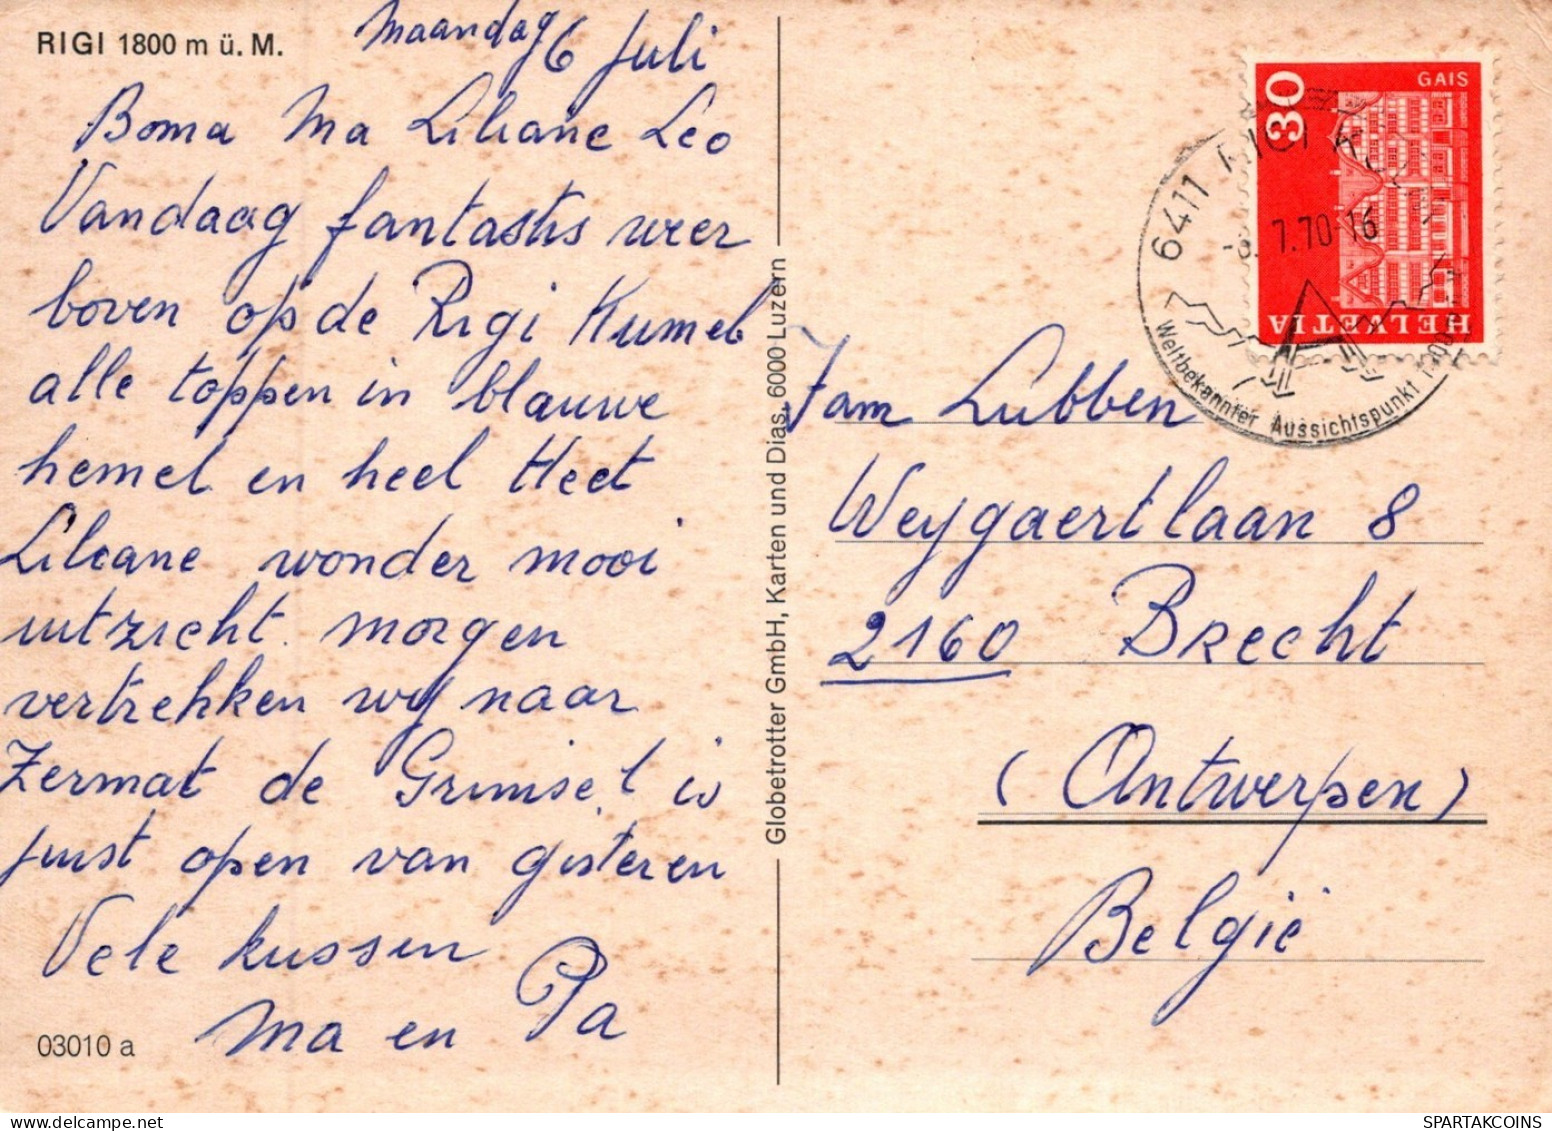 RIGI 1800 m ü. M.
Maandag 6 Juli
Boma Ma Liliane Leo
Vandaag fantastis weer
boven op de Rigi Kumel
alle toppen in blauwe
hemel en heel Heet
Liliane wonder mooi
uitzicht. morgen
vertrekken wy naar
Zermat de Grimsel is
juist open van gisteren
Vele kussen
Ma en Pa
03010 a
Globetrotter GmbH, Karten und Dias, 6000 Luzern
GAIS
30
HELVETIA
6411 RIGI
7.70-16
Weltbekannter Aussichtspunkt
Fam Lubben
Weygaertlaan 8
2160 Brecht
(Antwerpen)
België
SPARTAKCOINS